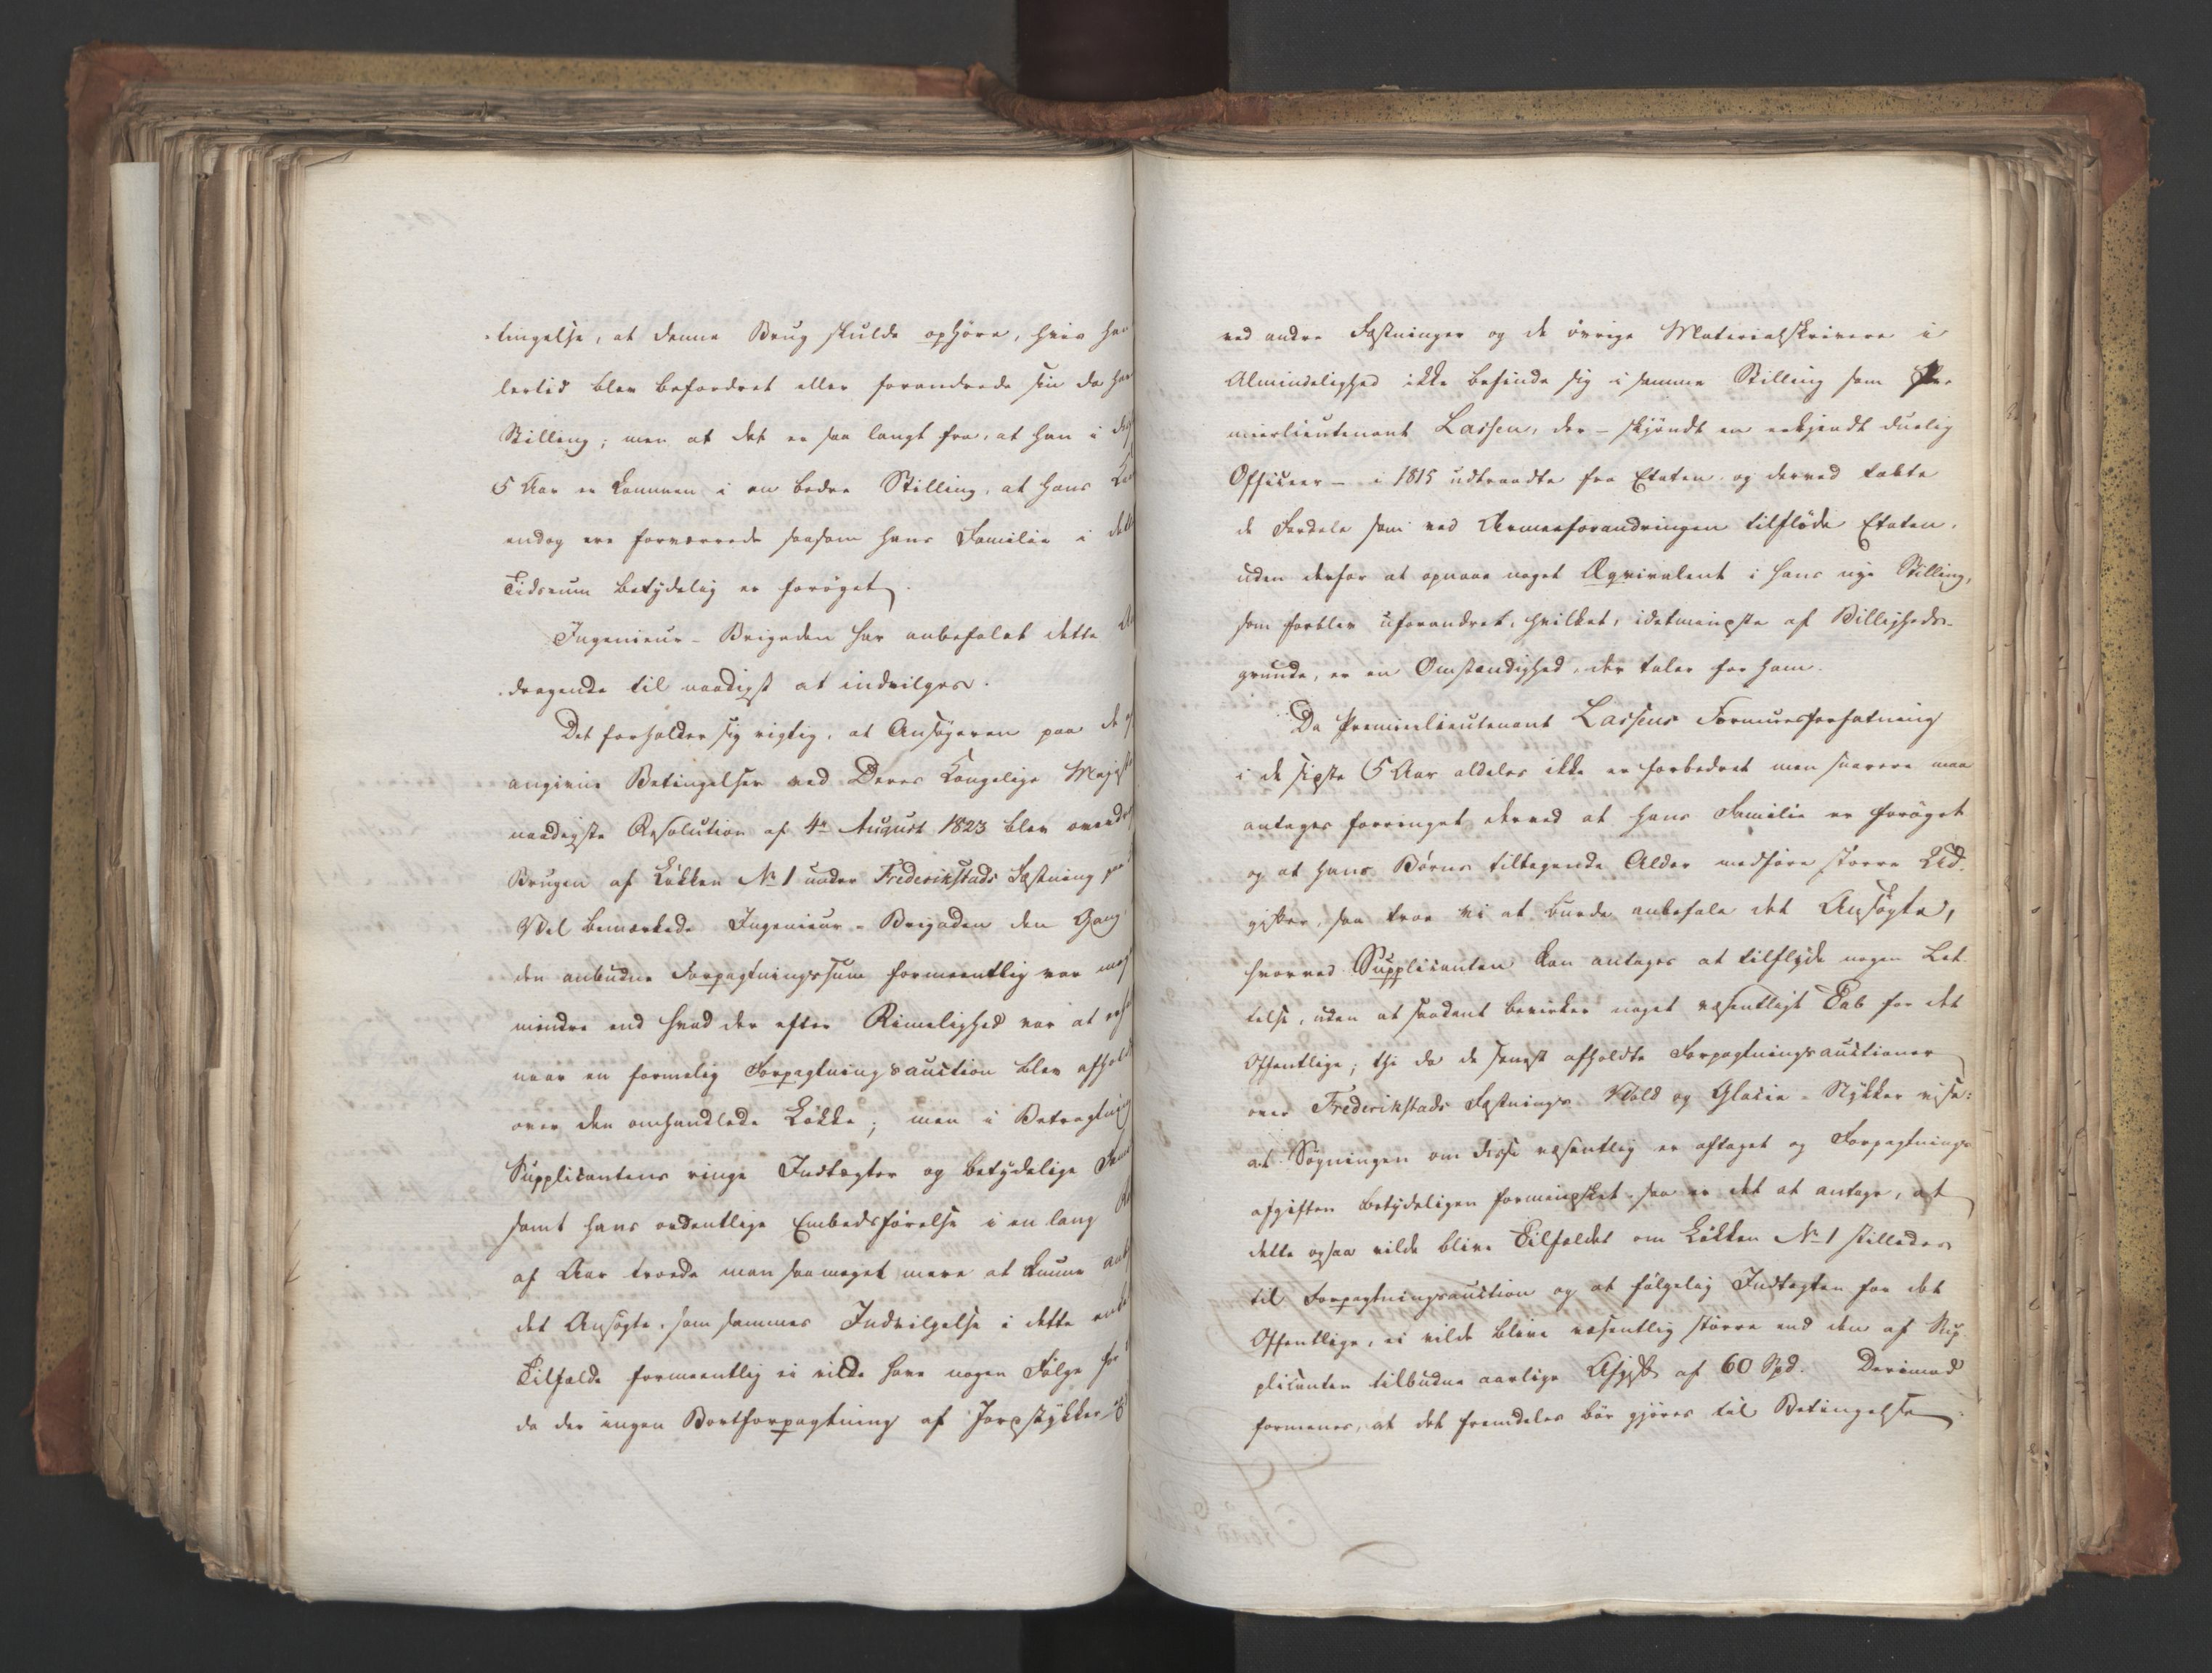 tingelse, at denne Brug skulde ophøre, hvis han
lertid blev befordret eller forandrede sin da hav
Stilling; men at det er saa langt fra, at han i disse
5 Aar er kommen i en bedre Stilling, at hans
endog ere forværrede saasom hans Familie i dette
Tidsrum betydelig er forøget.
Ingenieur-Brigaden har anbefalet dette
dragende til naadigst at indvilges.
Det forholder sig rigtig, at Ansøgeren paa de
angivne Betingelser ved Deres Kongelige Majest
naadigste Resolution af 4de August 1823 blev overdr
Brugen af Løkken No 1 under Frederikstads Fæstning
Vel bemærkede Ingenieur-Brigaden den Gang
den anbudne Forpagtningssum formeentlig var meg
mindre end hvad der efter Rimelighed var at erh
naar en formelig Forpagtningsauction blev afhold
over den omhandlede Løkke; men i Betragtning
Supplicantens ringe Indtægter og betydelige Fam
samt hans ordentlige Embedsførelse i en lang
af Aar troede man saameget mere at kunne anb
det Ansøgte, som sammes Indvilgelse i dette
Tilfælde formeentlig ei vilde have nogen Følge for
da der ingen Bortforpagtning af Jordstykker
ved andre Fæstninger og de øvrige Materialskrivere i
Almindelighed ikke befinde sig i samme Stilling som Pre-
mierlieutenant Lassen, der – skjøndt en erkjendt duelig
Officeer – i 1815 udtraadte fra Etaten og derved tabte
de Fordele som ved Armeeforandringen tilflöde Etaten,
uden derfor at opnaae noget Æqvivalent i hans nye Stilling,
som forblev uforandret, hvilket, idetmindste af Billigheds-
grunde, er en Omstændighed, der taler for ham.
Da Premierlieutenant Lassens Formuesforfatning
i de sidste 5 Aar aldeles ikke er forbedret men snarere maa
antages forringet derved at hans Familie er forøget
og at hans Børns tiltagende Alder medføre større Ud-
gifter, saa troe vi at burde anbefale det Ansøgte,
hvorved Supplicanten kan antages at tilflyde nogen Let-
telse, uden at saadant bevirker noget væsentligt Tab for det
Offentlige; thi da de senest afholdte Forpagtningsauctioner
over Frederikstads Fæstnings Vold og Glacie-Stykker vise:
at Søgningen om disse væsentlig er aftaget og Forpagtnings-
afgiften betydeligen formindsket, saa er det at antage, at
dette ogsaa vilde blive Tilfældet om Løkken No 1 stilledes
til Forpagtningsauction og at følgelig Indtægten for det
Offentlige, ei vilde blive væsentlig større end den af Sup-
plicanten tilbudne aarlige Afgift af 60 Spd. Derimod
formenes, at det fremdeles bør gjøres til Betingelse